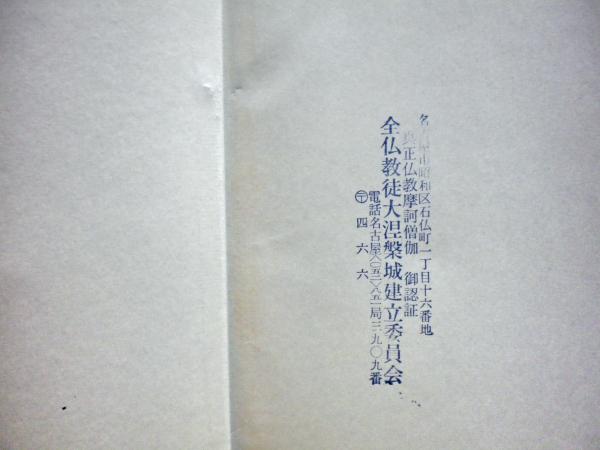 名古屋市昭和区石仏町一丁目十六番地
真正仏教摩訶僧伽 御認証
全仏教徒大涅槃城建立委員会
電話名古屋(〇五二)八五一局三九〇九番
〒四六六